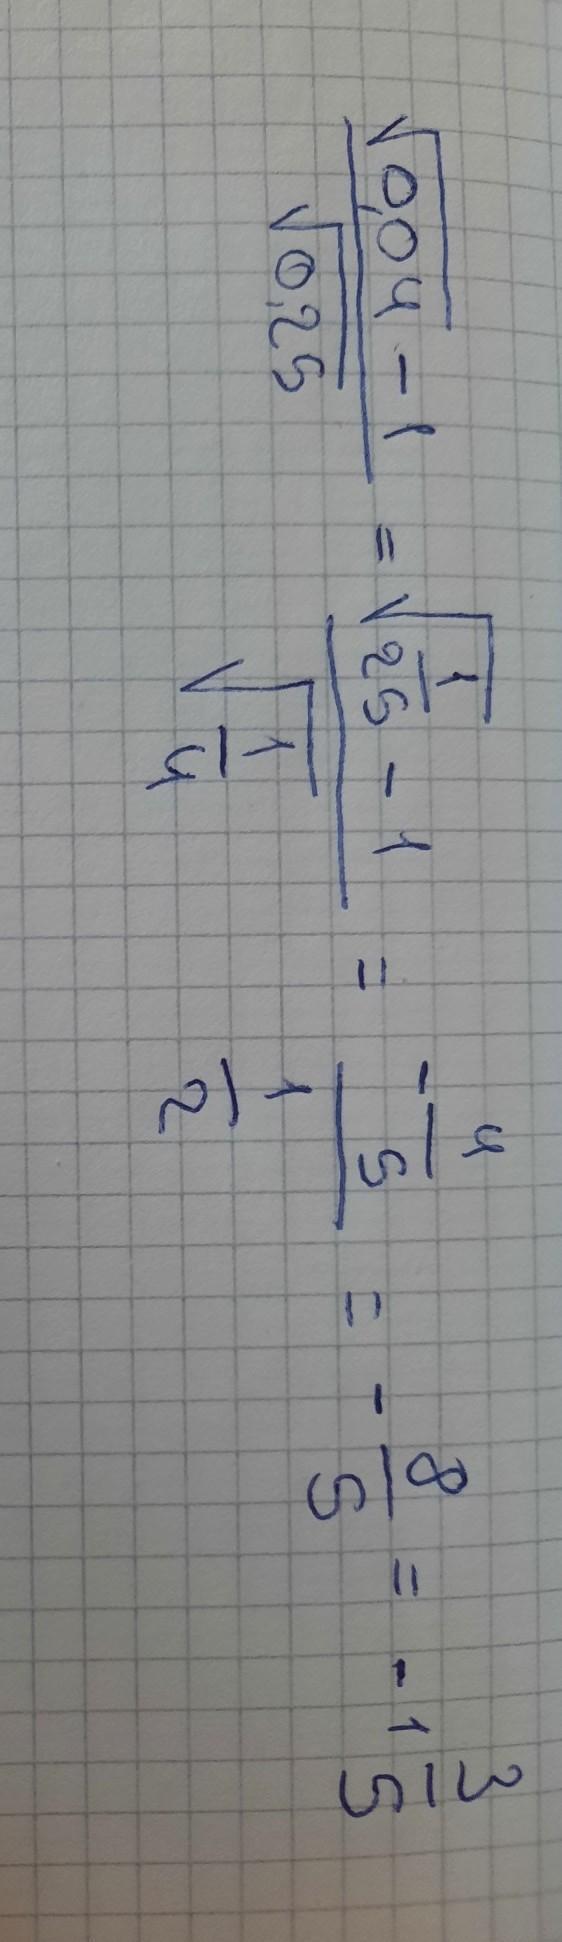 (√0,04 - 1)/√0,25 = (√(1/25) - 1)/√(1/4) = (-4/5)/(1/2) = -8/5 = -1 3/5